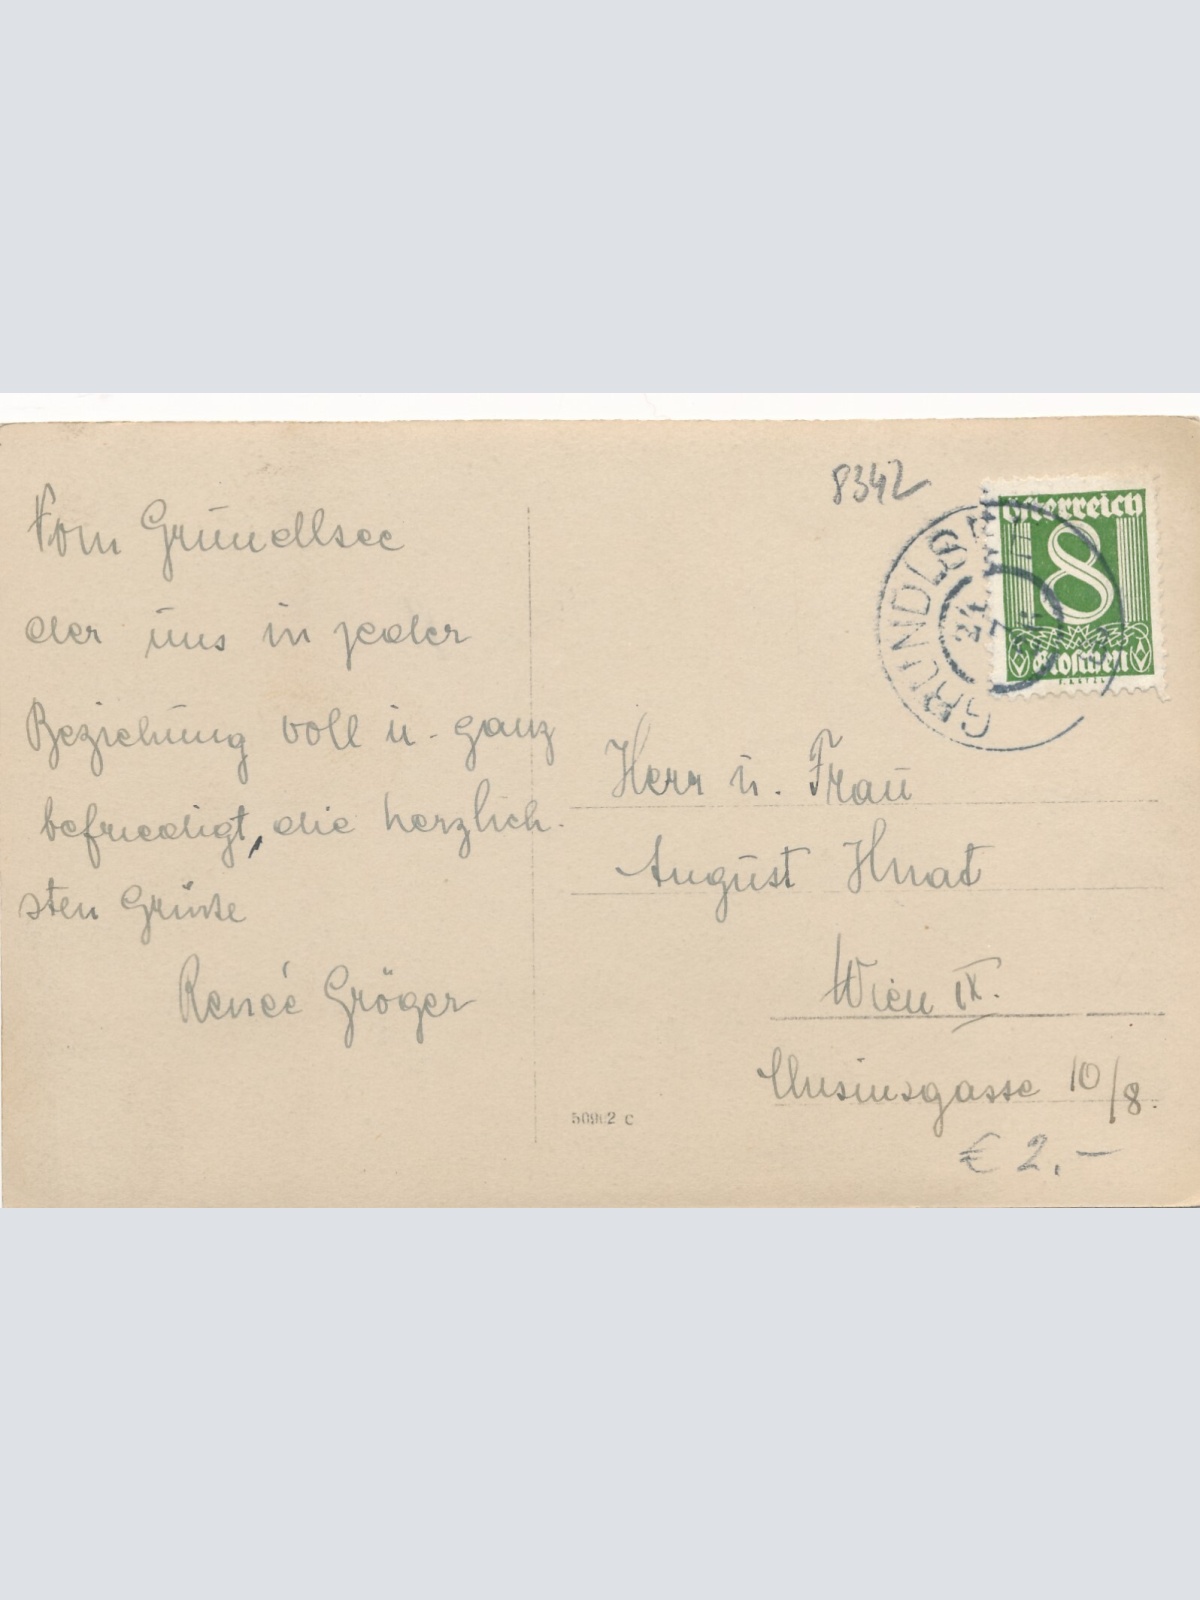 Vom Grundllsee
der uns in jeder
Beziehung voll u. ganz
befriedigt, die herzlich-
sten Grüsse
Reneé Gröger
8342
Österreich
8
Groschen
GRUNDLSEE
24
Herr u. Frau
August Hnat
Wien IX.
Clusiusgasse 10/8.
€ 2,-